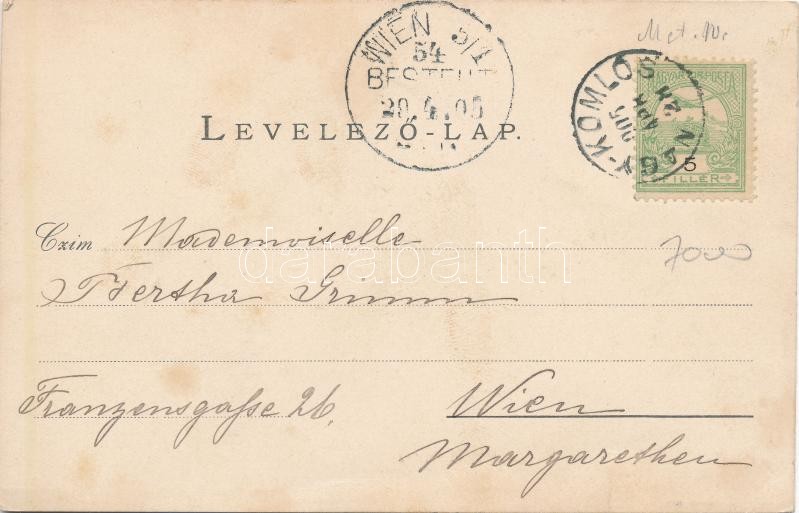 WIEN 5/1
54
BESTELLT
20.4.05
NAGY-KOMLÓS
905
APR
MAGYAR KIR. POSTA
5
FILLÉR
LEVELEZŐ-LAP.
Czim Mademoiselle
Bertha Grimm
7000
Franzensgaſse 26, Wien
Margarethen
darabanth